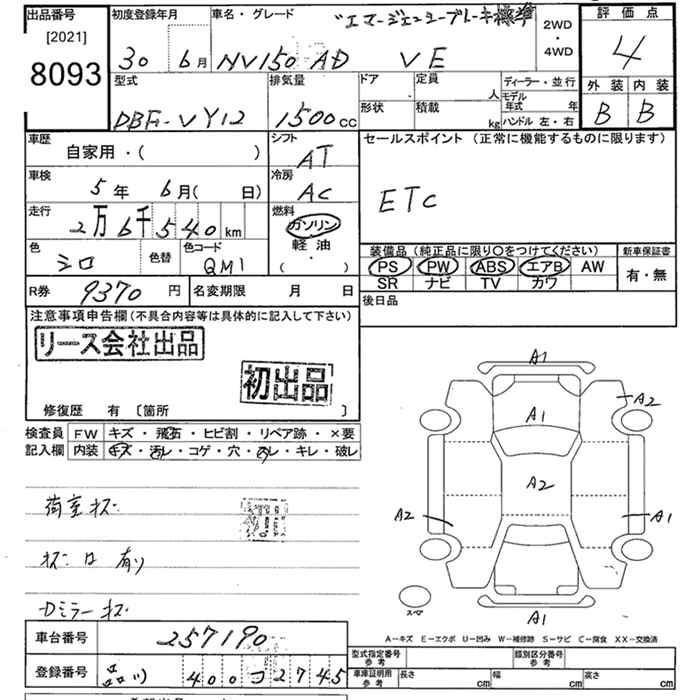 出品番号 [2021] 8093
初度登録年月 30 6月
車名・グレード "エマージェンシーブレーキ標準
NV150 AD VE
2WD・4WD
評価点 4
外装 B 内装 B
型式 DBF-VY12
排気量 1500cc
ドア 形状
定員 人 積載 kg
ディーラー・並行
モデル年式 年
ハンドル 左・右
車歴 自家用・( )
シフト AT
セールスポイント (正常に機能するものに限ります)
ETC
車検 5年 6月( 日)
冷房 AC
走行 2万6千540km
燃料 ガソリン 軽油 ( ・ )
色 シロ 色替 色コード QM1
装備品 (純正品に限り○をつけてください) 新車保証書
PS PW ABS エアB AW 有・無
SR ナビ TV カワ
R券 9370円 名変期限 月 日
後日品
注意事項申告欄 (不具合内容等は具体的に記入して下さい)
リース会社出品
初出品
修復歴 有 〔箇所 〕
検査員記入欄
FW キズ・飛石・ヒビ割・リペア跡・×要
内装 キズ・汚レ・コゲ・穴・スレ・キレ・破レ
荷室キズ
キズ 有り
Dミラーキズ
A1
A1
A2
A2
A2
A1
A1
スペア
A-キズ E-エクボ U-凹み W-補修跡 S-サビ C-腐食 XX-交換済
車台番号 257190
登録番号 品川 400 コ 2745
型式指定番号 参考 類別区分番号 参考
車庫証明用 参考 長さ cm 幅 cm 高さ cm